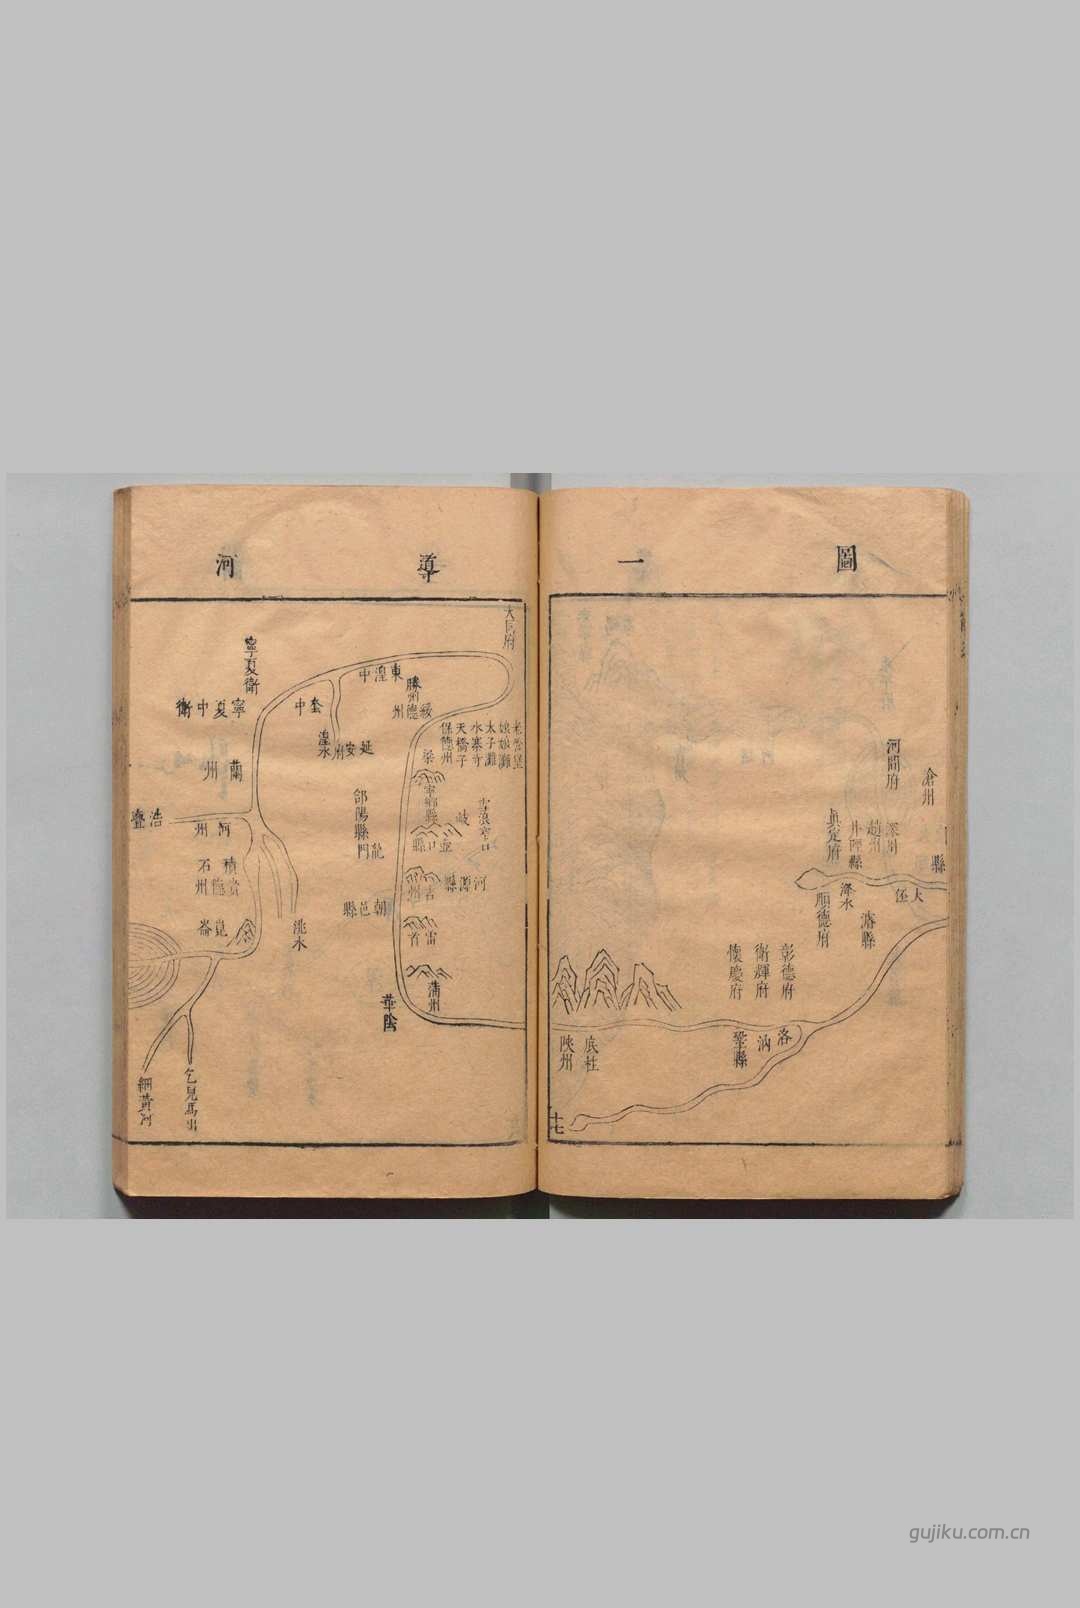 圖一導河
滄州
縣
河間府
深州
趙州
井陘縣
真定府
大伾
洚水
順德府
濬縣
彰德府
衛輝府
懷慶府
洛汭
鞏縣
底柱
陝州
十七
大同府
娘娘灘
太子灘
水寨寺
天橋子
保德州
綏德州
勝州
東湟中
梁
寧鄉縣
岐
壺口縣
河源縣
吉州
雷首
蒲州
華陰
朝邑縣
龍門
郃陽縣
延安府
湟水
套中
寧夏衛
寧夏中衛
蘭州
河州
浩亹
積石
貴德州
洮水
崑崙
乞兒馬出
細黃河
gujiku.com.cn